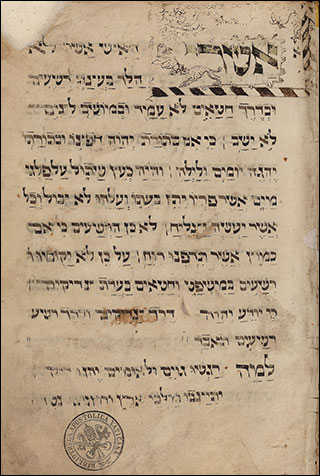 אשרי האיש אשר לא
הלך בעצת רשעים
ובדרך חטאים לא עמד ובמושב לצים
לא ישב כי אם בתורת יהוה חפצו ובתורתו
יהגה יומם ולילה והיה כעץ שתול על פלגי
מים אשר פריו יתן בעתו ועלהו לא יבול וכל
אשר יעשה יצליח לא כן הרשעים כי אם
כמוץ אשר תדפנו רוח על כן לא יקומו
רשעים במשפט וחטאים בעדת צדיקים
כי יודע יהוה דרך צדיקים ודרך רשע
רשעים תאבד
למה רגשו גוים ולאומים יהגו ריק
יתיצבו מלכי ארץ ורוזנים
BIBLIOTECA APOSTOLICA VATICANA